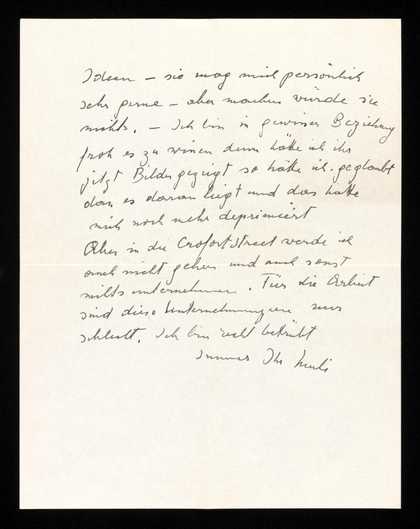 Ideen – sie mag mich persönlich
sehr gerne – aber machen würde sie
nichts. – Ich bin in gewisser Beziehung
froh es zu wissen denn hätte ich ihr
jetzt Bilder gezeigt so hätte ich geglaubt
dass es daran liegt und das hätte
mich noch mehr deprimiert
Aber in die Street werde ich
auch nicht gehen und auch sonst
nichts unternehmen. Für die Arbeit
sind diese Unternehmungen nur
schlecht. Ich bin betrübt
Immer Ihr